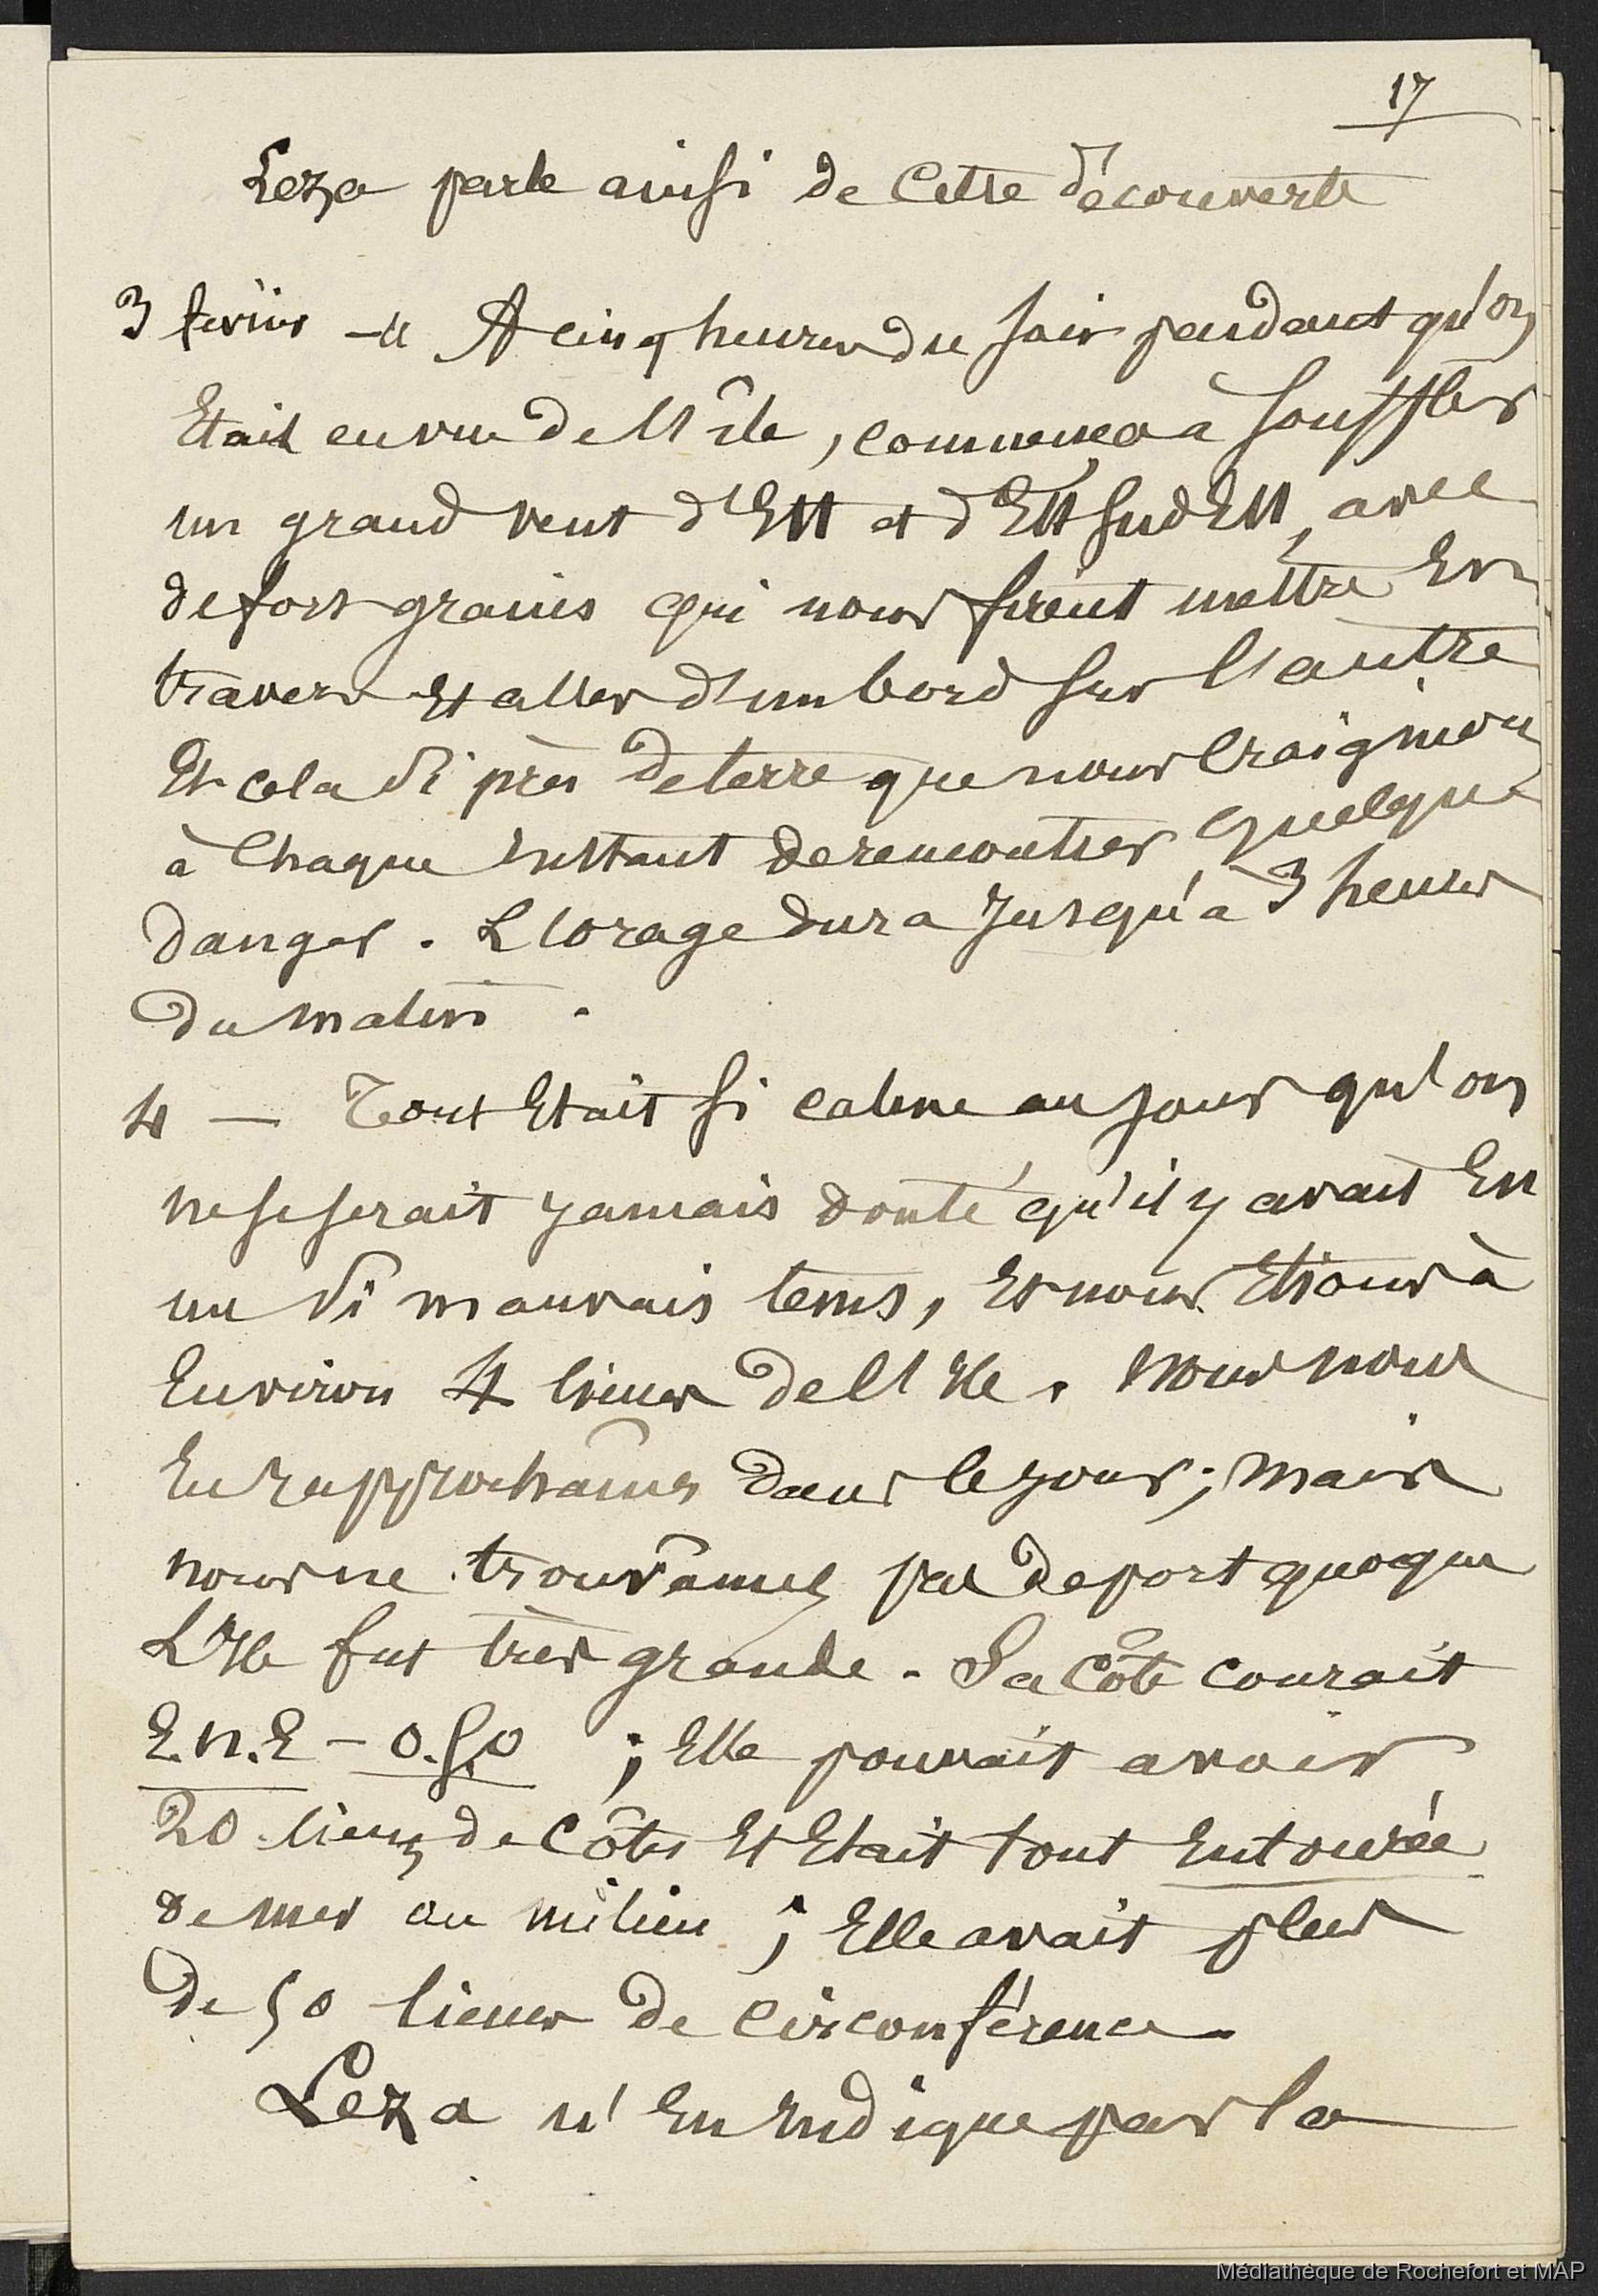 17
Leza parle ainsi de cette découverte
3 fevrier — « A cinq heures du soir pendant qu'on
Etait en vue de l'île, commença à souffler
un grand vent d'Est et d'Est Sud Est, avec
de forts grains qui nous firent mettre En
travers Et aller d'un bord sur l'autre
Et cela si près de terre que nous craignions
à chaque Instant de rencontrer quelque
danger. L'orage dura jusqu'a 3 heures
du matin.
4 — Tout Etait si calme au jour qu'on
ne se serait jamais douté qu'il y avait En
un si mauvais tems, Et nous Etions à
Environ 4 lieues de l'Ile. Nous nous
En rapprochâmes dans le jour; mais
nous ne trouvâmes pas de port quoque
L'Ile fut très grande. Sa Côte courait
E.N.E – O.S.O ; Elle pouvait avoir
20 lieues de Côtes Et Etait tout Entourée
de mer au milieu ; Elle avait plus
de 50 lieues de circonférence.
Leza n'En Indique pas la
Médiathèque de Rochefort et MAP